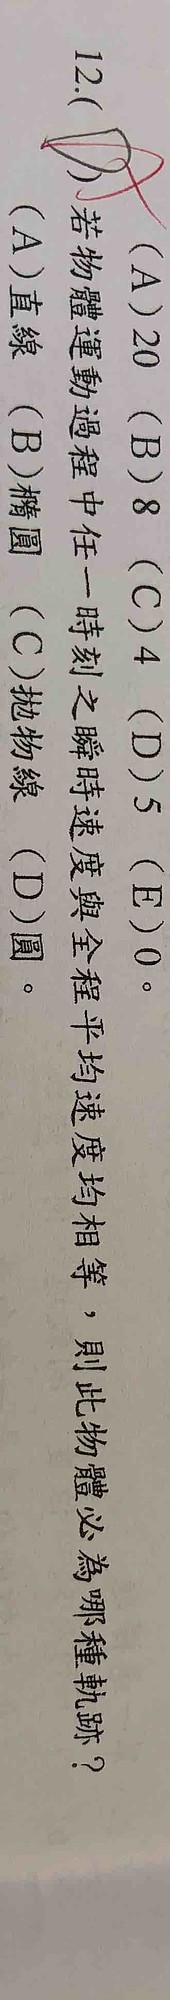 (A)20 (B)8 (C)4 (D)5 (E)0。
12.(D)若物體運動過程中任一時刻之瞬時速度與全程平均速度均相等，則此物體必為哪種軌跡？
(A)直線 (B)橢圓 (C)拋物線 (D)圓。